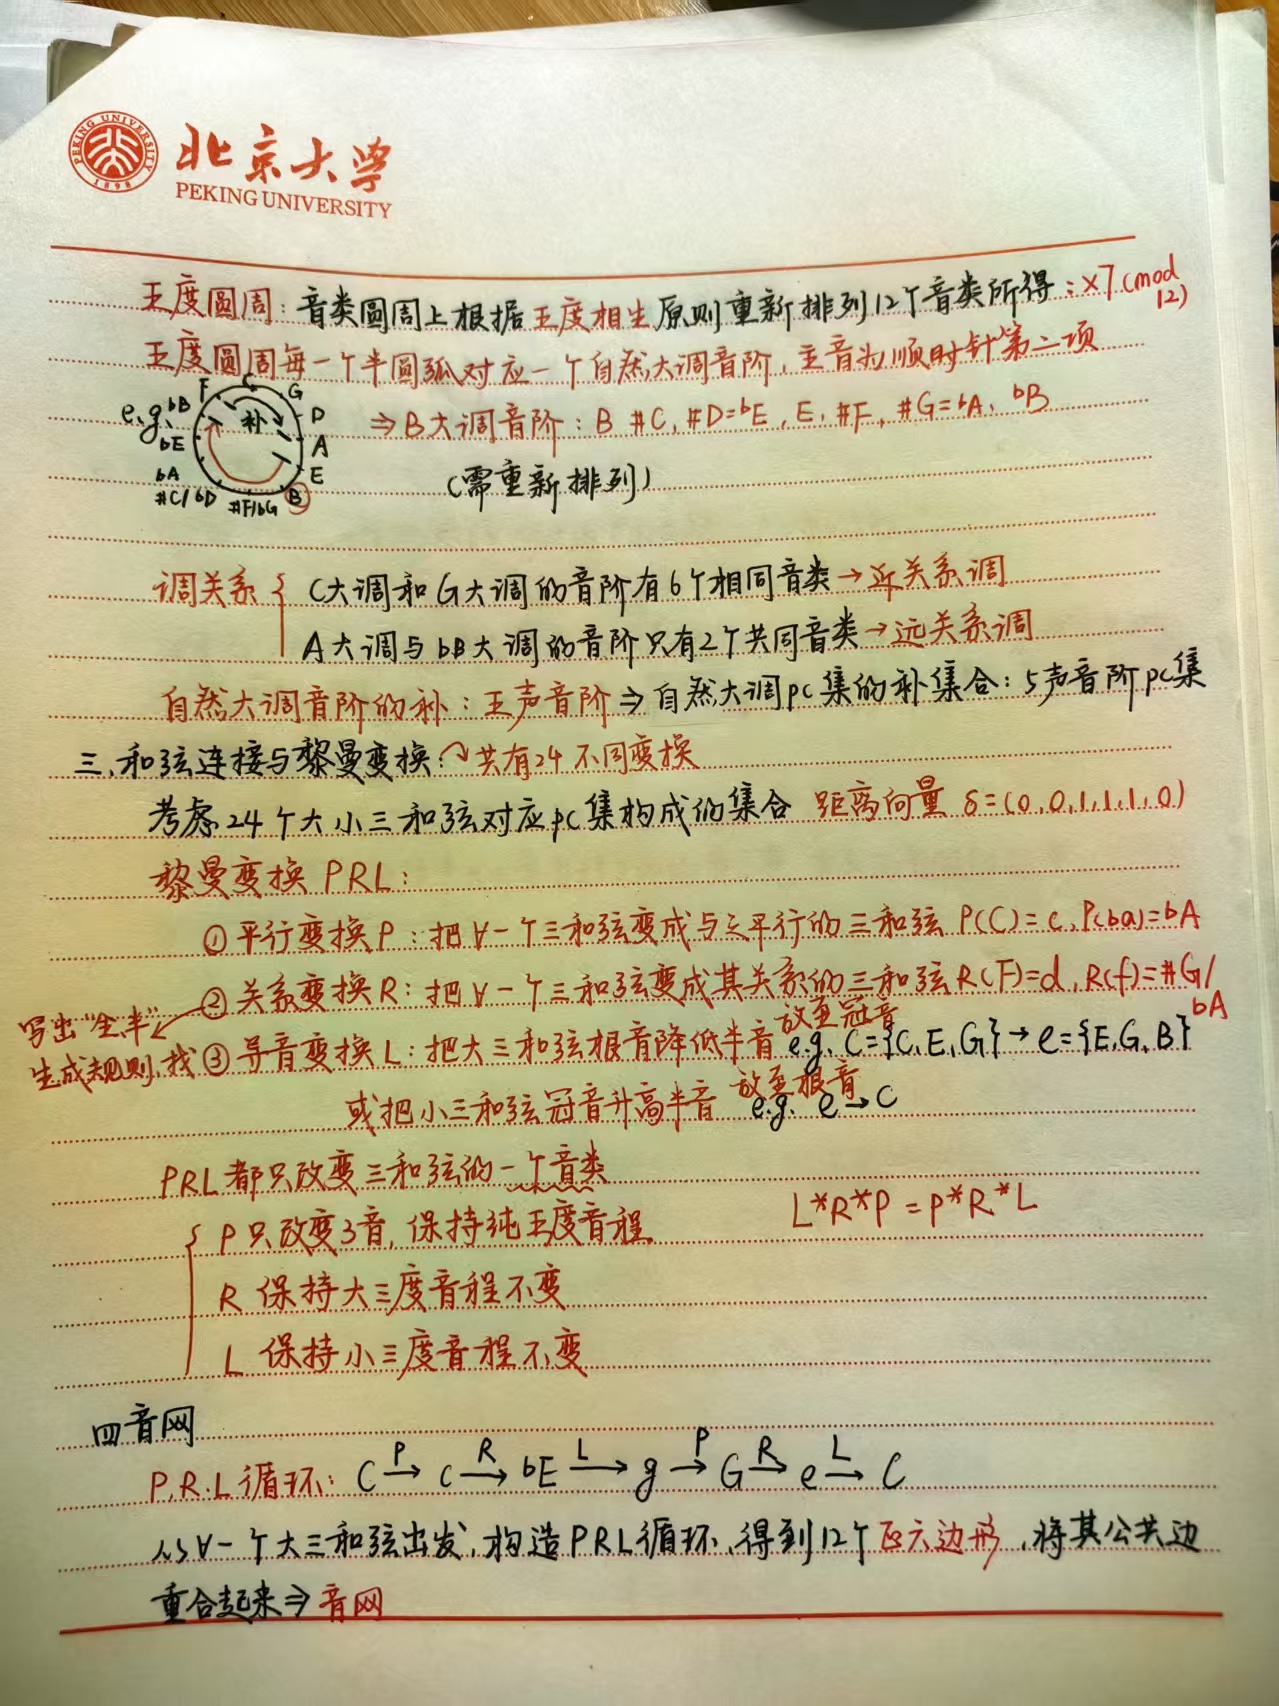 PEKING UNIVERSITY
1898
北京大学
PEKING UNIVERSITY
五度圆周：音类圆周上根据五度相生原则重新排列12个音类所得：×7(mod 12)
五度圆周每一个半圆弧对应一个自然大调音阶，主音为顺时针第二项
C
F
G
bB
D
e.g.
补
bE
A
bA
E
#C/bD
#F/bG
B
⇒B大调音阶：B #C, #D=bE, E, #F, #G=bA, bB
(需重新排列)
调关系
C大调和G大调的音阶有6个相同音类→近关系调
A大调与bB大调的音阶只有2个共同音类→远关系调
自然大调音阶的补：五声音阶⇒自然大调pc集的补集合：5声音阶pc集
三、和弦连接与黎曼变换：共有24不同变换
考虑24个大小三和弦对应pc集构成的集合 距离向量 δ=(0,0,1,1,1,0)
黎曼变换PRL：
①平行变换P：把∀一个三和弦变成与之平行的三和弦 P(C)=c, P(ba)=bA
②关系变换R：把∀一个三和弦变成其关系的三和弦 R(F)=d, R(f)=#G/bA
写出“全半”
生成规则,找
放至冠音
③导音变换L：把大三和弦根音降低半音 e.g. C={C,E,G}→e={E,G,B}
放至根音
或把小三和弦冠音升高半音 e.g. e→C
PRL都只改变三和弦的一个音类
L*R*P=P*R*L
P只改变3音,保持纯五度音程
R 保持大三度音程不变
L 保持小三度音程不变
四音网
P.R.L循环: C P→ c R→ bE L→ g P→ G R→ e L→ C
从∀一个大三和弦出发,构造PRL循环,得到12个正六边形,将其公共边
重合起来⇒音网